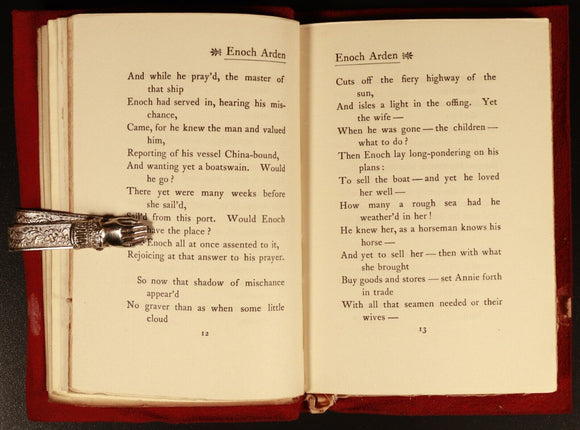 Enoch Arden
And while he pray'd, the master of
that ship
Enoch had served in, hearing his mis-
chance,
Came, for he knew the man and valued
him,
Reporting of his vessel China-bound,
And wanting yet a boatswain. Would
he go?
There yet were many weeks before
she sail'd,
Sail'd from this port. Would Enoch
have the place?
Enoch all at once assented to it,
Rejoicing at that answer to his prayer.
So now that shadow of mischance
appear'd
No graver than as when some little
cloud
12
Enoch Arden
Cuts off the fiery highway of the
sun,
And isles a light in the offing. Yet
the wife —
When he was gone — the children —
what to do?
Then Enoch lay long-pondering on his
plans:
To sell the boat — and yet he loved
her well —
How many a rough sea had he
weather'd in her!
He knew her, as a horseman knows his
horse —
And yet to sell her — then with what
she brought
Buy goods and stores — set Annie forth
in trade
With all that seamen needed or their
wives —
13